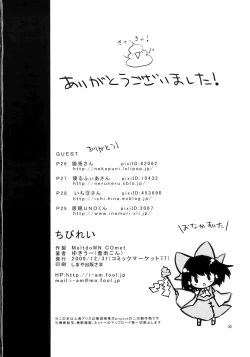 きゃっきゃ!
ありがとうございました!
ありがとう!
GUEST
P26 猫兎さん pixiID:62062
http://nekopuni.lolipop.jp/
P27 寝るふぃあさん pixiID:18422
http://neruneru.sblo.jp/
P28 いち③さん
http://ichi.hina.exblog.jp
P29 居眠UNOくん pixiID:2007
http://www.inemuri.xii.jp/
おなかすいた
ちびれい
作製 MeltdoWN COmet
著者 ゆきうー(雪雨こん)
発行 2009/12/31(コミックマーケット77)
印刷 しまや出版さま
HP:http://i-am.fool.jp
mail:i-am@mo.fool.jp
30